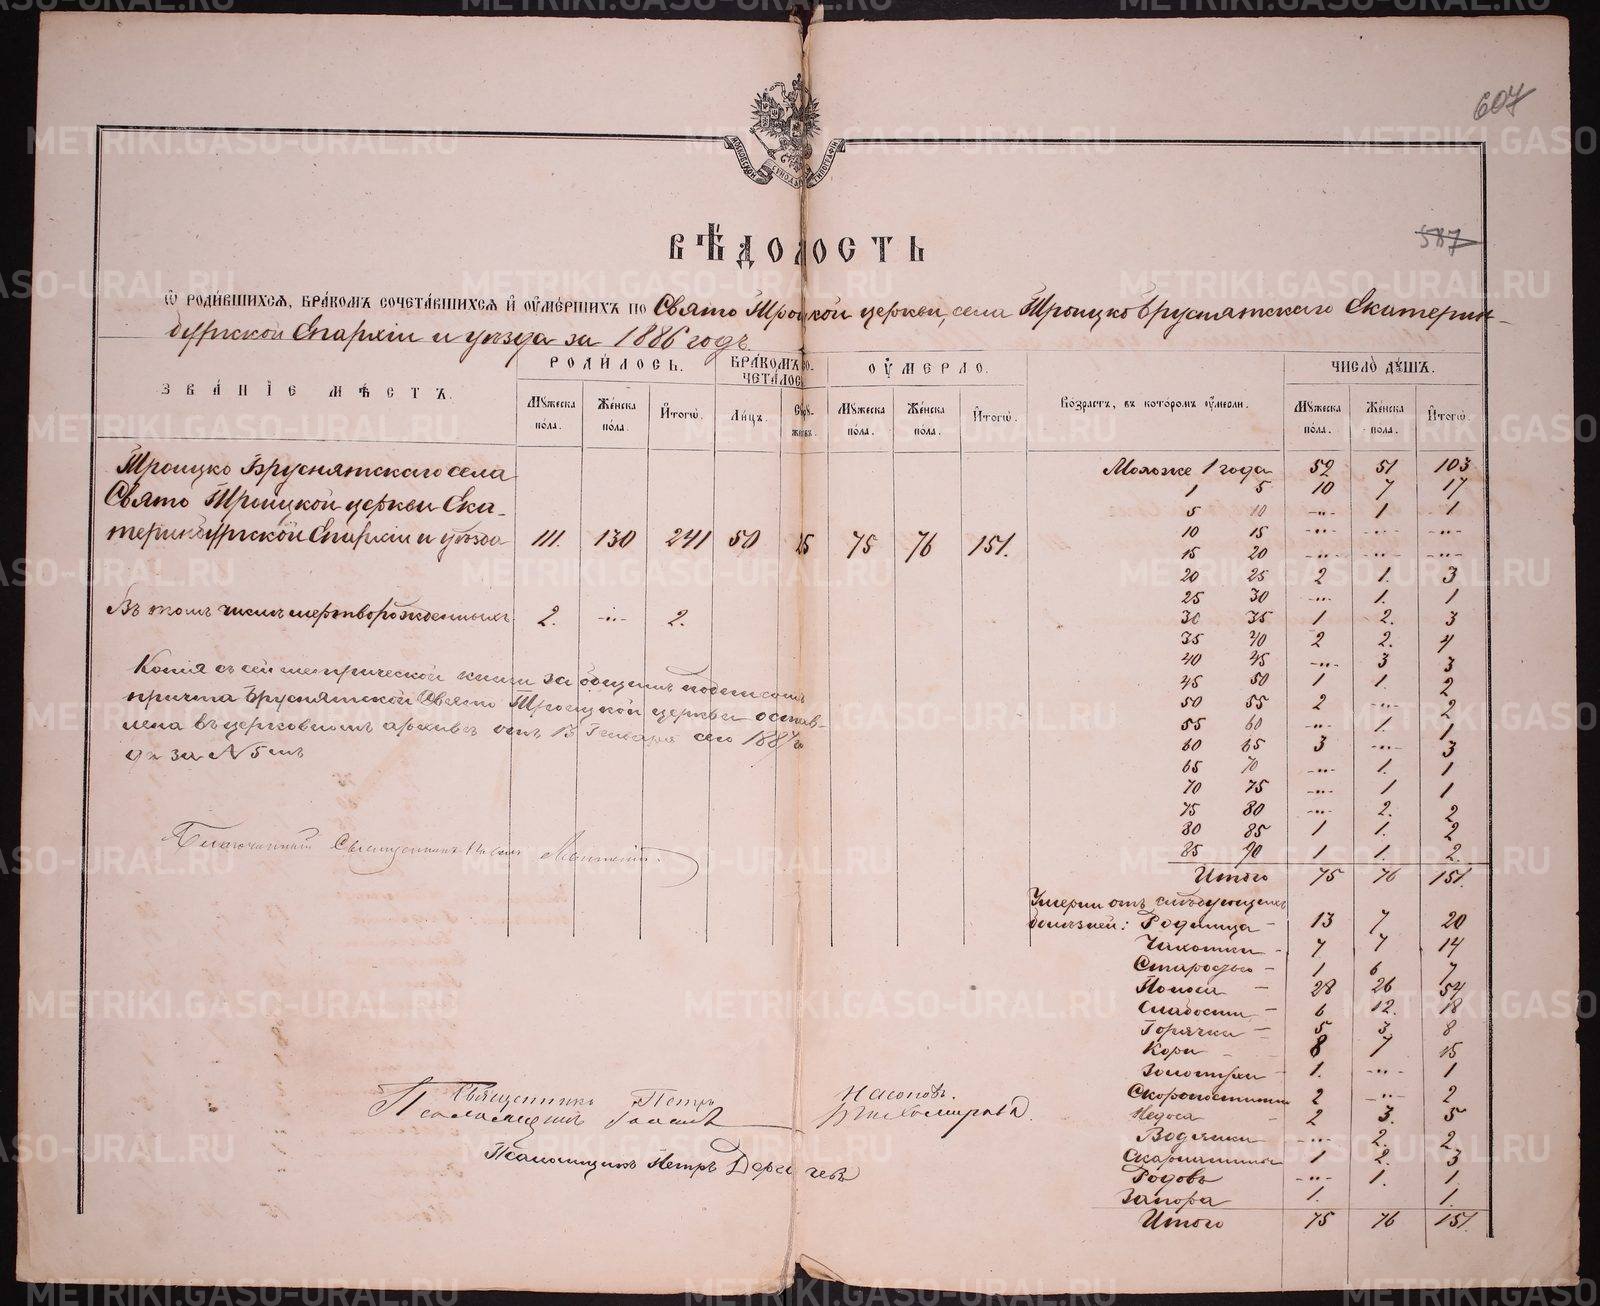 607
МОСКОВСКОЙ СУНОДАЛ. ТИПОГРАФІИ
ВѢДОМОСТЬ
587
Ѡ РОДИВШИХСѦ, БРАКОМЪ СОЧЕТАВШИХСѦ И ОУМЕРШИХЪ ПО Свято Троицкой церкви, села Троицко Бруснятскаго Екатерин-
бургской Епархіи и уѣзда за 1886 годъ.
ЗВАНІЕ МѢСТЪ. РОДИЛОСЬ. БРАКОМЪ СО- ОУМЕРЛО. Возрастъ, въ которомъ оумерли. ЧИСЛО ДУШЪ.
ЧЕТАЛОСЬ
Мужеска пола. Женска пола. Итогѡ. Лицъ. Супружествъ. Мужеска пола. Женска пола. Итогѡ. Мужеска пола. Женска пола. Итогѡ.
Троицко Бруснятскаго села
Свято Троицкой церкви Ека-
теринбургской Епархіи и уѣзда 111. 130 241 50 25 75 76 151.
Въ томъ числѣ мертворожденныхъ 2. -"- 2.
Копія съ сей метрической книги за общимъ подписомъ
причта Бруснятской Свято Троицкой церкви остав-
лена въ церковномъ архивѣ отъ 13 Генваря сего 1887 го
да за № 5мъ
Благочинный Священникъ
Моложе 1 года 52 51 103
1 5 10 7 17
5 10 -"- 1 1
10 15 -"- -"- -"-
15 20 -"- -"- -"-
20 25 2 1. 3
25 30 -"- 1. 1
30 35 1 2. 3
35 40 2 2. 4
40 45 -"- 3 3
45 50 1 1. 2
50 55 2 -"- 2
55 60 -"- 1. 1
60 65 3 -"- 3
65 70 -"- 1. 1
70 75 -"- 1 1
75 80 -"- 2. 2
80 85 1 1. 2
85 90 1 1. 2.
Итого 75 76 151.
Умерли отъ слѣдующихъ
болѣзней: Родимца - 13 7 20
Чахотки - 7 7 14
1 6 7
Поноса - 28 26 54
Слабости - 6 12. 18
Горячки - 5 3. 8
Кори - 8 7 15
Золотухи - 1. -"- 1
Скоропостижно 2 -"- 2
2 3. 5
Водянки -"- 2. 2.
Скарлатины 1 2. 3
Родовъ -"- 1. 1
Запора 1. 1.
Итого 75 76 151.
Священникъ Петръ
Псаломщикъ
Псаломщикъ Петръ
METRIKI.GASO-URAL.RU